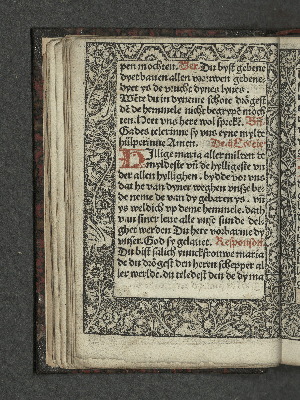 pen mochten. Ver. Du byst gebene
dyet bauen allen vrouwen gebene
dyet ys de vrucht dynes lyues.
Were du in dyneme schote drogest
de de hemmele nicht begrype moch
ten. Here vns here wol sprekt.
Gades telerinne sy vns eyne mylte
hulperinne Amen. De.ii. Leccie
Hillige maria aller milten te
myldeste vn de hylligeste vn
der allen hyllighen. bydde vor vns
dat he van dyner weghen vnse be
de neme de van dy gebaren ys. vn
ys weldich vp deme hemmele. dath
van siner leue alle vnse sunde
ghet werden Du here vorbarme dy
vnser. God sy gelauet. Responson
Du bist salich yunckfrouwe maria
de du drogest den heren schepper al
ler werlde. du teledest den de dy ma